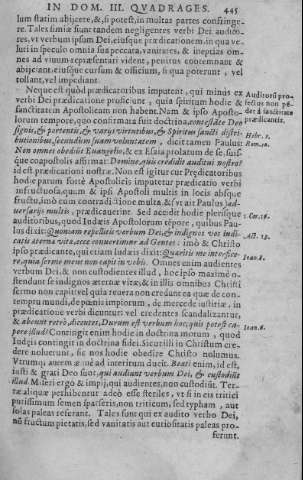 IN DOM. III. QVADRAGES. 445
lum statim abijcere, &, si potest, in multas partes confringe-
re. Tales sunt tandem negligentes verbi Dei audito-
res, vt verbum ipsum Dei, eiusque prædicationem, in qua ve-
luti in speculo omnia sua peccata, vanitates, & ineptias om-
nes ad viuum repræsentari vident, penitus contemnant &
abijciant, eiusque cursum & officium, si qua poterunt, vel
tollant, vel impediant.
Neque est quòd prædicatoribus imputent, qui minus ex
verbi Dei prædicatione proficiunt, quia spiritum hodie &
sanctitatem Apostolicam non habent. Nam & ipso Aposto-
lorum tempore, quo confirmata fuit doctrina, contestante Deo
signis, & portentis, & varijs virtutibus, & Spiritus sancti distri-
butionibus, secundùm suam voluntatem, dicit tamen Paulus:
Non omnes obediunt Euangelio, & ex Esaia probatum de se, suis-
que coapostolis affirmat: Domine, quis credidit auditui nostro?
id est prædicationi nostræ. Non est igitur cur Prædicatoribus
hodie parum fortè Apostolicis imputetur prædicatio verbi
infructuosa, quum & ipsi Apostoli multis in locis absque
fructu, imò cum contradictione multa, & vt ait Paulus
uersarijs multis, prædicauerint. Sed accedit hodie plerisque
auditoribus, quod Iudæis Apostolorum tempore, quibus Pau-
lus dicit: Quoniam repellitis verbum Dei, & indignos vos iudi-
catis æterna vita, ecce conuertimur ad Gentes: imò & Christo
ipso prædicante, qui etiam Iudæis dixit: Quæritis me interfice-
re, quia sermo meus non capit in vobis. Omnes enim audientes
verbum Dei, & non custodientes illud, hoc ipso maximè o-
stendunt se indignos æternæ vitæ, & in illis omnibus Christi
sermo non capit, vel quia reuera non credunt ea quæ de con-
temptu mundi, de pœnis impiorum, de mercede iustitiæ in
prædicatione verbi dicuntur: vel credentes scandalizantur,
& abeunt retrò, dicentes, Durum est verbum hoc, quis potest ca-
pere illud? Contingit enim hodie in doctrina morum, quod
Iudæis contingit in doctrina fidei. Sicut illi in Christum cre-
dere noluerunt, sic nos hodie obedire Christo nolumus.
Vtrumque autem æquè ad interitum ducit. Beati enim, id est,
iusti & grati Deo sunt, qui audiunt verbum Dei, & custodiunt
illud. Miseri ergo & impij, qui audientes, non custodiunt. Ter-
ræ aliquæ perhibentur adeò esse steriles, vt si in eis tritici
purissimum semen sparseris, non triticum, sed typham, aut
solas paleas referant. Tales sunt qui ex auditu verbi Dei,
nō fructum pietatis, sed vanitatis aut curiositatis paleas pro-
ferunt.
Auditorū pro-
fectus non pē-
det à sanctitate
prædicantis.
Hebr. 2.
Rom. 10.
Cor. 16.
Act. 13.
Ioan. 8.
Ioan. 6.